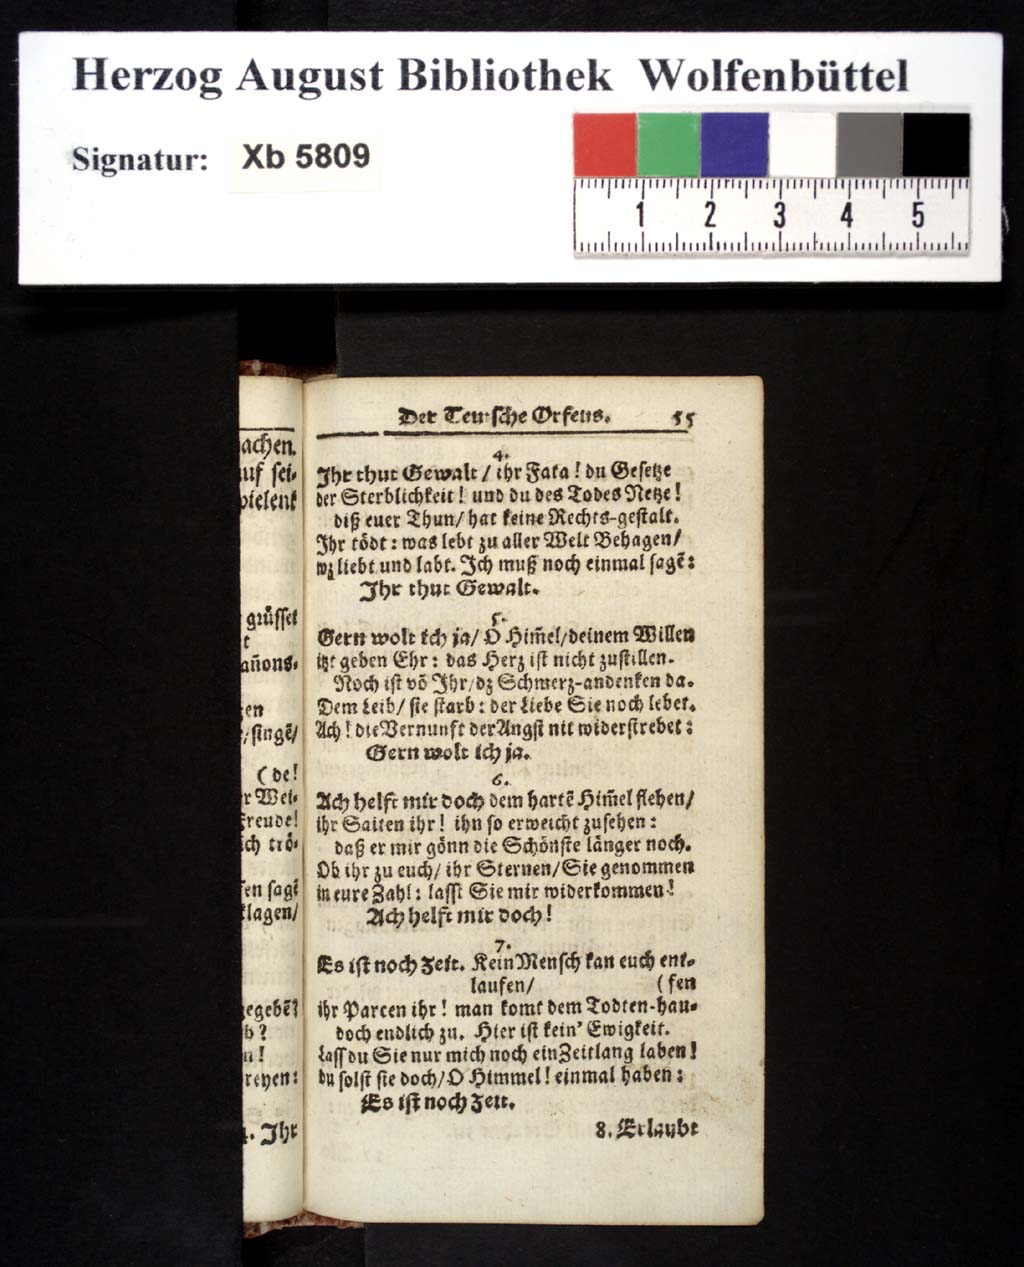 Herzog August Bibliothek Wolfenbüttel
Signatur: Xb 5809
1 2 3 4 5
achen.
uf sei-
pielent
grüsset
t
añons-
en
/singẽ/
(de!
r Wei-
freude!
ich trö-
en sagẽ
klagen/
gegebẽ?
b?
n!
reyen:
4. Ihr
Der Teutsche Orfeus. 55
4.
Ihr thut Gewalt/ ihr Fata! du Gesetze
der Sterblichkeit! und du des Todes Netze!
diß euer Thun/ hat keine Rechts-gestalt.
Ihr tödt: was lebt zu aller Welt Behagen/
wz liebt und labt. Ich muß noch einmal sagẽ:
Ihr thut Gewalt.
5.
Gern wolt ich ja/ O Him̃el/ deinem Willen
itzt geben Ehr: das Herz ist nicht zustillen.
Noch ist võ Ihr/ dz Schmerz-andenken da.
Dem Leib/ sie starb: der Liebe Sie noch lebet.
Ach! die Vernunft der Angst nit widerstrebet:
Gern wolt ich ja.
6.
Ach helft mir doch dem hartẽ Him̃el flehen/
ihr Saiten ihr! ihn so erweicht zusehen:
daß er mir gönn die Schönste länger noch.
Ob ihr zu euch/ ihr Sternen/ Sie genommen
in eure Zahl: lasst Sie mir widerkommen!
Ach helft mir doch!
7.
Es ist noch Zeit. Kein Mensch kan euch ent-
laufen/ (fen
ihr Parcen ihr! man komt dem Todten-hau-
doch endlich zu. Hier ist kein' Ewigkeit.
Lass du Sie nur mich noch ein Zeitlang laben!
du solst sie doch/ O Himmel! einmal haben:
Es ist noch Zeit.
8. Erlaubt